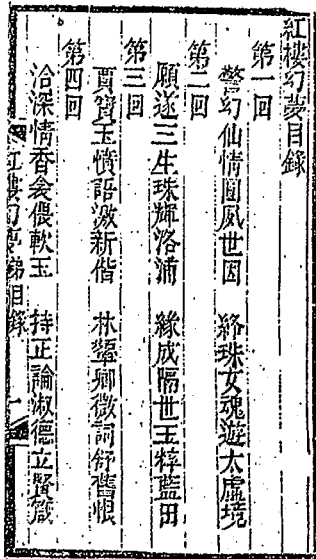 紅樓幻夢目錄
第一回
警幻仙情圓夙世因　絳珠女魂遊太虛境
第二回
願遂三生珠輝洛浦　緣成隔世玉粹藍田
第三回
賈寶玉憤語激新偕　林顰卿微詞舒舊恨
第四回
洽深情香衾偎軟玉　持正論淑德立賢箴
紅樓幻夢 目錄 一